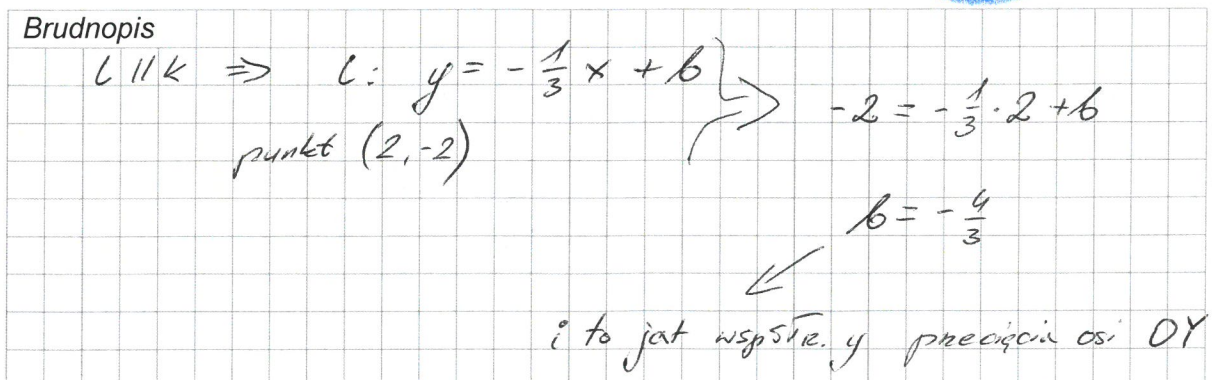 Brudnopis
l || k ⇒ l: y = -1/3 x + b
punkt (2, -2)
-2 = -1/3 · 2 + b
b = -4/3
i to jest współrz. y przecięcia osi OY